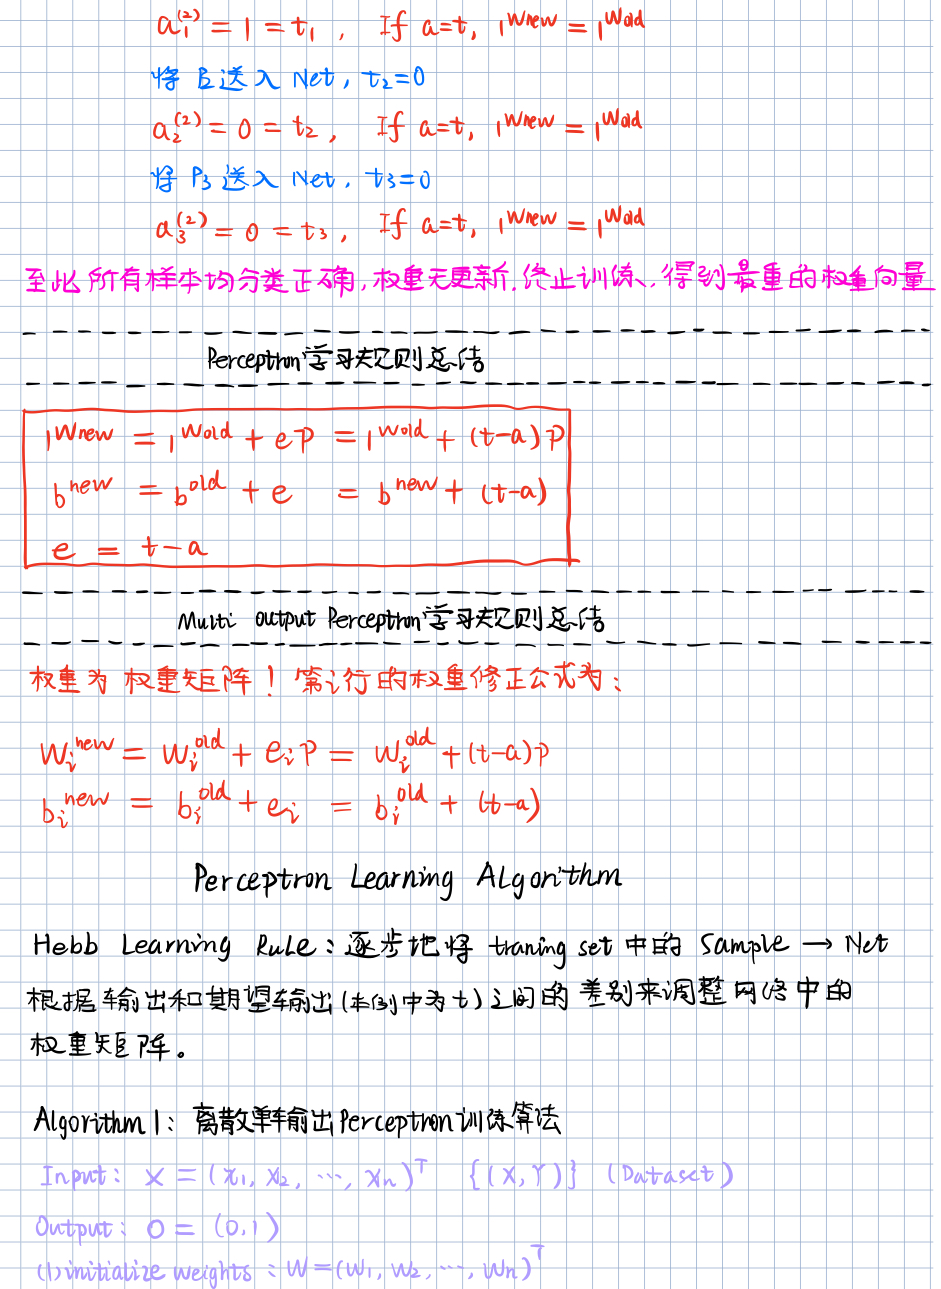 a₁⁽²⁾ = 1 = t₁ , If a=t, ₁Wⁿᵉʷ = ₁Wᵒˡᵈ
将 P₂送入 Net, t₂=0
a₂⁽²⁾ = 0 = t₂ , If a=t, ₁Wⁿᵉʷ = ₁Wᵒˡᵈ
将 P₃ 送入 Net, t₃=0
a₃⁽²⁾ = 0 = t₃ , If a=t, ₁Wⁿᵉʷ = ₁Wᵒˡᵈ
至此所有样本均分类正确,权重无更新,终止训练,得到最重的权重向量
Perceptron学习规则总结
₁Wⁿᵉʷ = ₁Wᵒˡᵈ + eP = ₁Wᵒˡᵈ + (t-a)P
bⁿᵉʷ = bᵒˡᵈ + e = bⁿᵉʷ + (t-a)
e = t-a
Multi output Perceptron学习规则总结
权重为权重矩阵! 第i行的权重修正公式为:
Wᵢⁿᵉʷ = Wᵢᵒˡᵈ + eᵢP = Wᵢᵒˡᵈ + (t-a)P
bᵢⁿᵉʷ = bᵢᵒˡᵈ + eᵢ = bᵢᵒˡᵈ + (t-a)
Perceptron Learning Algorithm
Hebb Learning Rule:逐步地将 traning set 中的 Sample → Net
根据输出和期望输出(本例中为t)之间的差别来调整网络中的
权重矩阵。
Algorithm 1: 离散单输出Perceptron训练算法
Input: X = (x₁, x₂, ..., xₙ)ᵀ {(X,Y)} (Dataset)
Output: O = (0,1)
(1)initialize weights : W=(W₁, W₂, ..., Wn)ᵀ